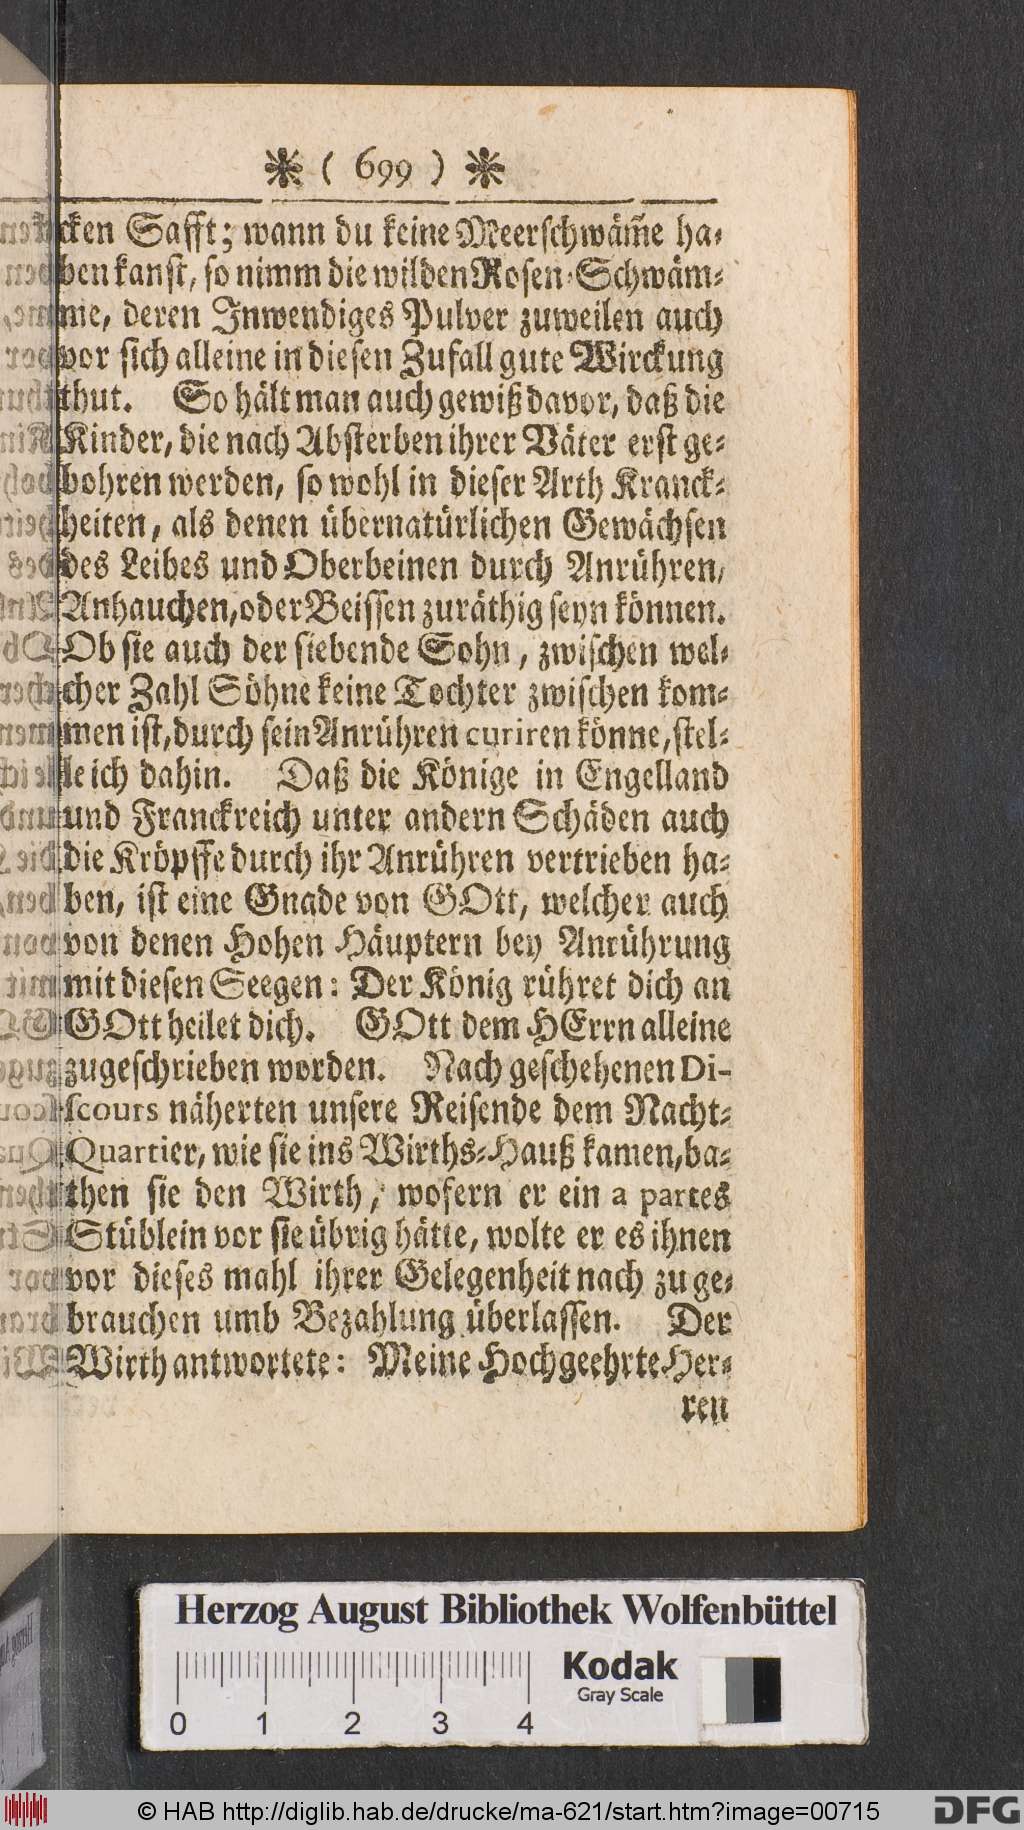 ❋ ( 699 ) ❋
cken Safft; wann du keine Meerschwäm̃e ha⸗
ben kanst, so nimm die wilden Rosen⸗Schwäm⸗
me, deren Inwendiges Pulver zuweilen auch
vor sich alleine in diesen Zufall gute Wirckung
thut. So hält man auch gewiß davor, daß die
Kinder, die nach Absterben ihrer Väter erst ge⸗
bohren werden, so wohl in dieser Arth Kranck⸗
heiten, als denen übernatürlichen Gewächsen
des Leibes und Oberbeinen durch Anrühren,
Anhauchen, oder Beissen zuräthig seyn können.
Ob sie auch der siebende Sohn, zwischen wel⸗
cher Zahl Söhne keine Tochter zwischen kom⸗
men ist, durch sein Anrühren curiren könne, stel⸗
le ich dahin. Daß die Könige in Engelland
und Franckreich unter andern Schäden auch
die Kröpffe durch ihr Anrühren vertrieben ha⸗
ben, ist eine Gnade von GOtt, welcher auch
von denen Hohen Häuptern bey Anrührung
mit diesen Seegen: Der König rühret dich an
GOtt heilet dich. GOtt dem HErrn alleine
zugeschrieben worden. Nach geschehenen Di-
scours näherten unsere Reisende dem Nacht⸗
Quartier, wie sie ins Wirths⸗Hauß kamen, ba⸗
then sie den Wirth, wofern er ein a partes
Stüblein vor sie übrig hätte, wolte er es ihnen
vor dieses mahl ihrer Gelegenheit nach zu ge⸗
brauchen umb Bezahlung überlassen. Der
Wirth antwortete: Meine Hochgeehrte Her⸗
ren
Herzog August Bibliothek Wolfenbüttel
Kodak
Gray Scale
0 1 2 3 4
© HAB http://diglib.hab.de/drucke/ma-621/start.htm?image=00715
DFG